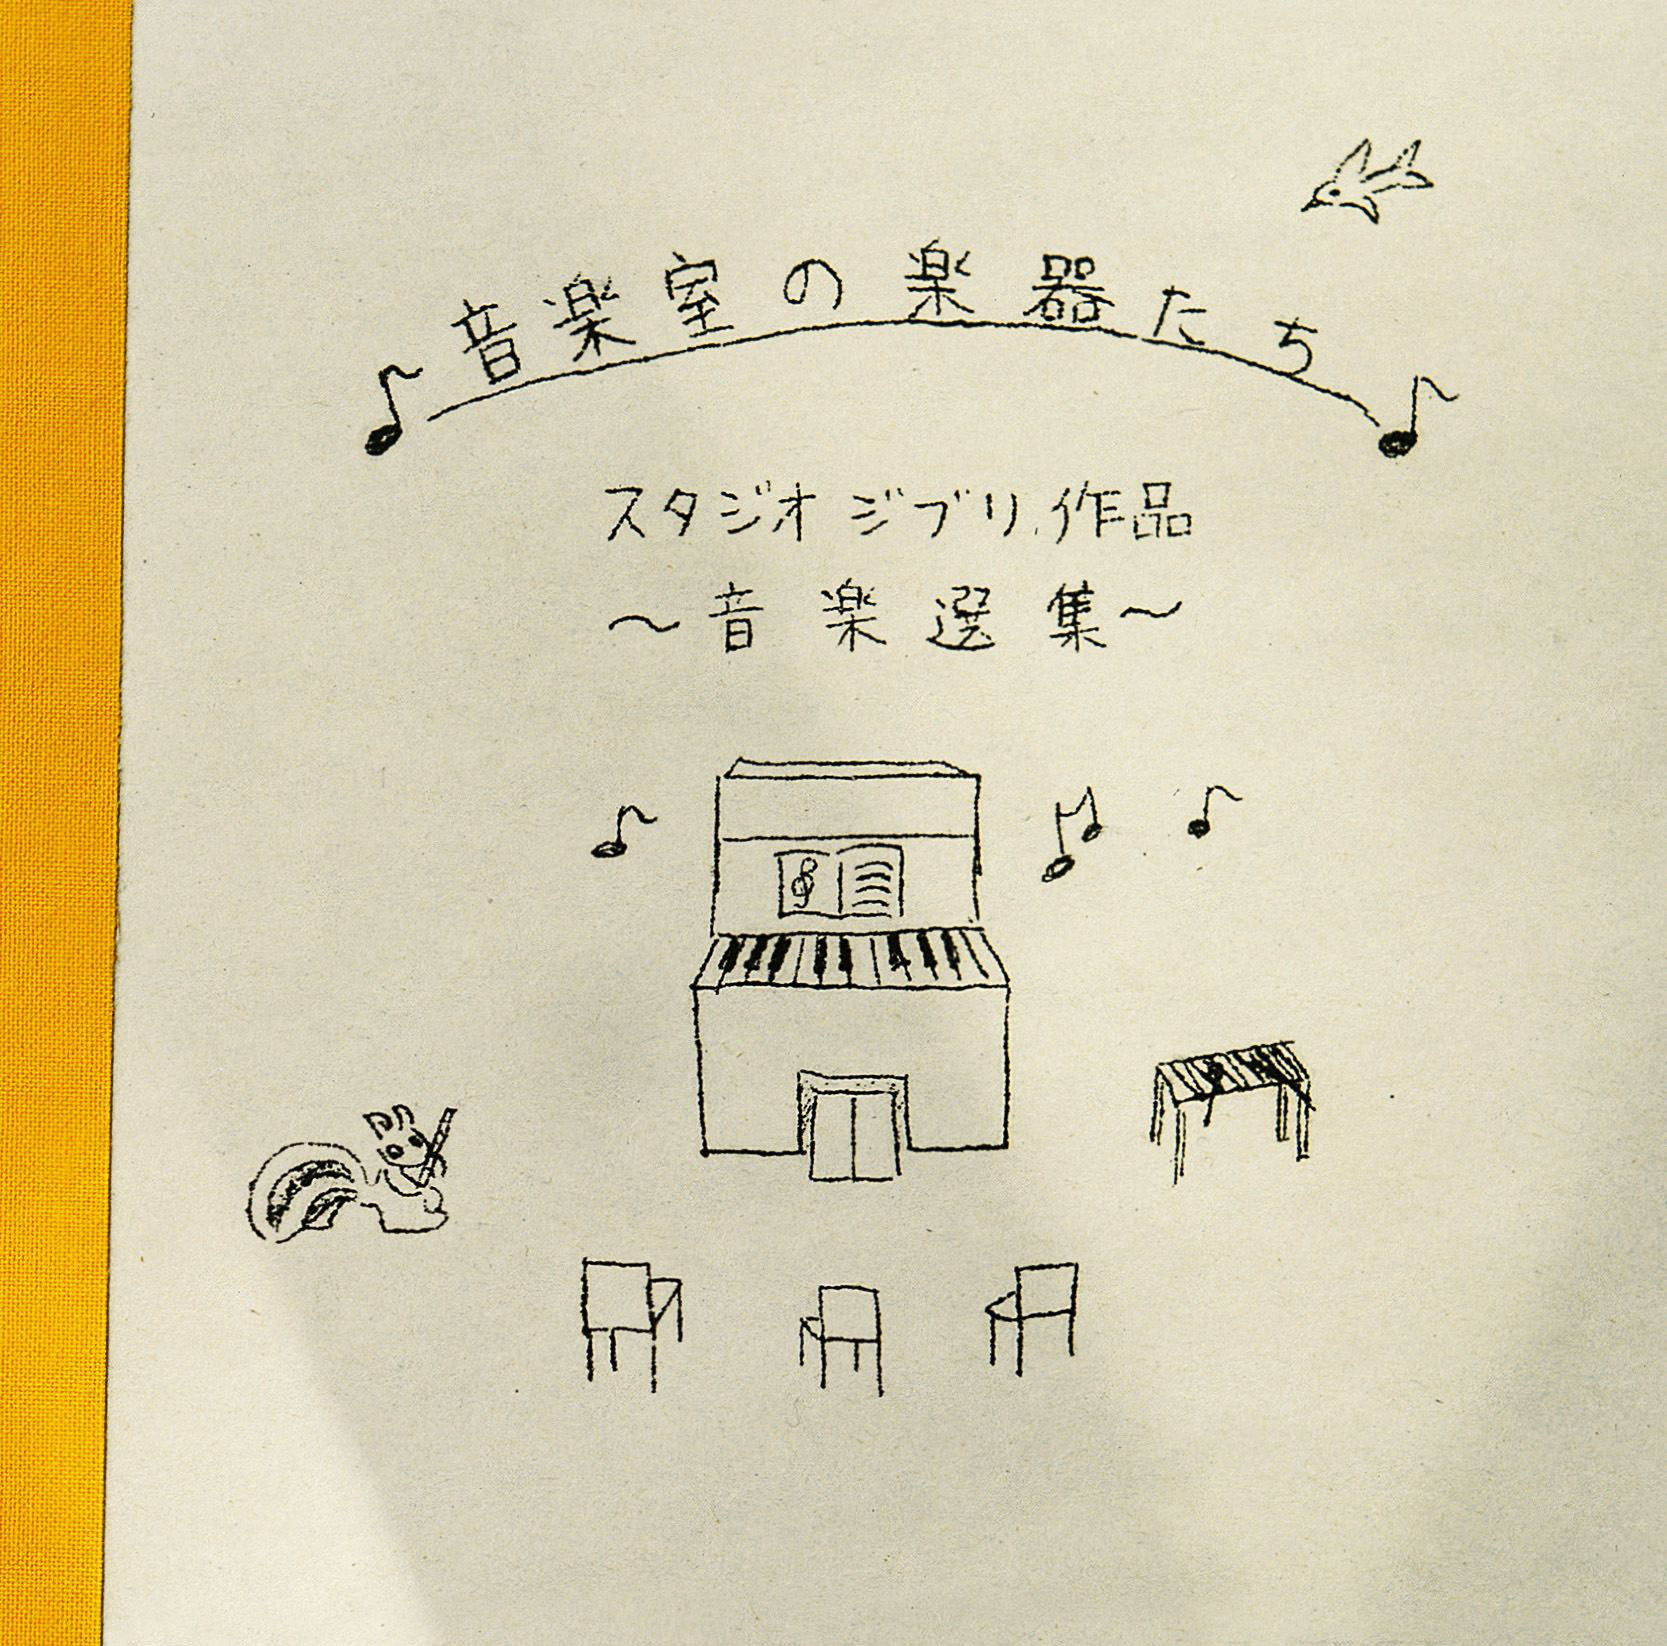 音楽室の楽器たち
スタジオジブリ作品
～音楽選集～